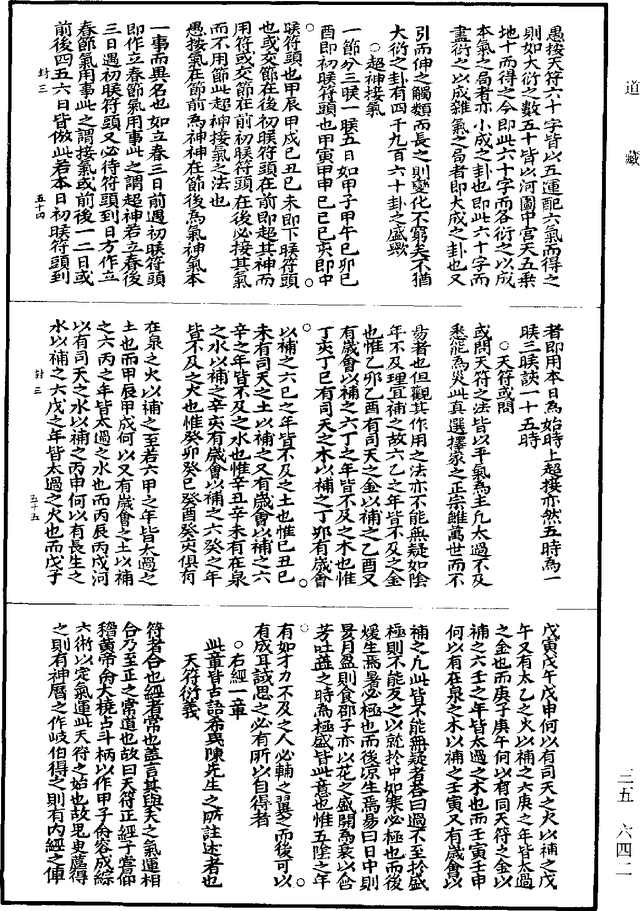 道藏
愚按天符六十字皆以五運配六氣而得之
則如大衍之數五十皆以河圖中宮天五乘
地十而得之今即此六十字而各衍之以成
本氣之局者亦小成之卦也即此六十字而
盡衍之以成雜氣之局者即大成之卦也又
引而伸之觸類而長之則變化不窮矣不猶
大衍之卦有四千九百六十卦之盛歟
○超神接氣
一節分三䐉一䐉五日如甲子甲午己卯己
酉即初䐉符頭也甲寅甲申己巳己亥即中
䐉符頭也甲辰甲戌己丑己未即下䐉符頭
也或交節在後初䐉符頭在前即超其神而
用符或交節在前初䐉符頭在後必接其氣
而不用節此超神接氣之法也
愚按氣在節前為神神在節後為氣神氣本
一事而異名也如立春三日前遇初䐉符頭
即作立春節氣用事此之謂超神若立春後
三日遇初䐉符頭又必待符頭到日方作立
春節氣用事此之謂接氣或前後一二日或
前後四五六日皆倣此若本日初䐉符頭到
封三　五十四
者即用本日為始時上超接亦然五時為一
䐉三䐉該一十五時
○天符或問
或問天符之法皆以平氣為主凡太過不及
悉能為災此真選擇家之正宗雖萬世而不
易者也但觀其作用之法亦不能無疑如陰
年不及理宜補之故六乙之年皆不及之金
也惟乙卯乙酉有司天之金以補之乙酉又
有歲會以補之六丁之年皆不及之木也惟
丁亥丁巳有司天之木以補之丁卯有歲會
以補之六己之年皆不及之土也惟己丑己
未有司天之土以補之又有歲會以補之六
辛之年皆不及之水也惟辛丑辛未有在泉
之水以補之辛亥有歲會以補之六癸之年
皆不及之火也惟癸卯癸巳癸酉癸亥俱有
在泉之火以補之至若六甲之年皆太過之
土也而甲辰甲戌何以又有歲會之土以補
之六丙之年皆太過之水也而丙辰丙戌何
以有司天之水以補之丙申何以有長生之
水以補之六戊之年皆太過之火也而戊子
封三　五十五
戊寅戊午戊申何以有司天之火以補之戊
午又有太乙之火以補之六庚之年皆太過
之金也而庚子庚午何以有同天符之金以
補之六壬之年皆太過之木也而壬寅壬申
何以有在泉之木以補之壬寅又有歲會以
補之凡此皆不能無疑者荅曰過不至於盛
極則不能反之以就於中如寒必極也而後
煖生焉暑必極也而後凉生焉易曰日中則
昃月盈則食邵子亦以花之盛開為衰以含
芳吐蕋之時為極盛皆此意也惟五陰之年
有如才力不及之人必輔之翼之而後可以
有成耳誠思之必有所以自得者
○右經一章
此章皆古語希與陳先生之所註述者也
天符衍義
符者合也經者常也蓋言其與天之氣運相
合乃至正之常道也故曰天符正經予嘗仰
稽黃帝命大橈占斗柄以作甲子命容成綜
六術以定氣運此天符之始也故鬼臾蓲得
之則有神曆之作岐伯得之則有內經之傳
三五　六四二